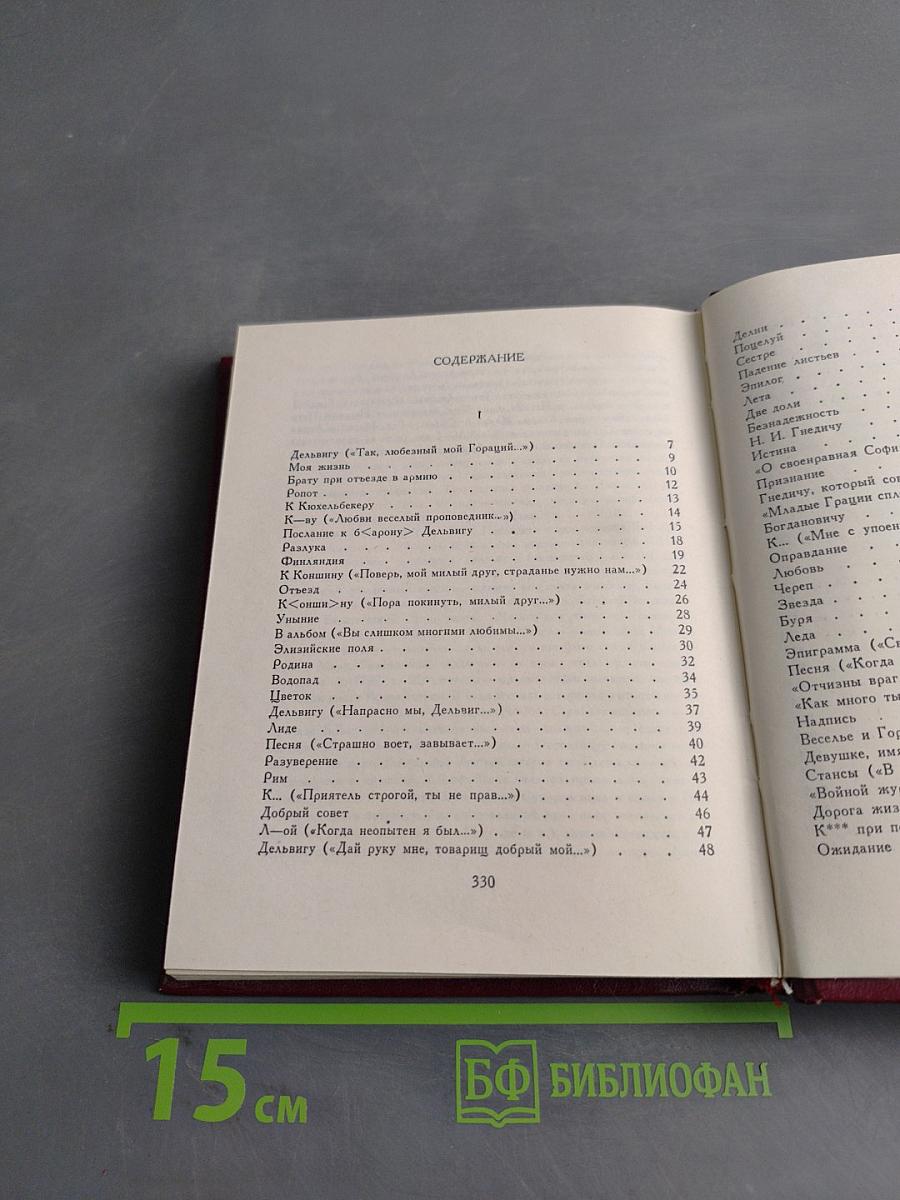 СОДЕРЖАНИЕ
I
Дельвигу («Так, любезный мой Гораций...») . . . . . 7
Моя жизнь . . . . . . . . . . 9
Брату при отъезде в армию . . . . . . . . 10
Ропот . . . . . . . . . . . 12
К Кюхельбекеру . . . . . . . . . 13
К—ву («Любви веселый проповедник...») . . . . . 14
Послание к б<арону> Дельвигу . . . . . . 15
Разлука . . . . . . . . . . . 18
Финляндия . . . . . . . . . . 19
К Коншину («Поверь, мой милый друг, страданье нужно нам...») 22
Отъезд . . . . . . . . . . . 24
К<онши>ну («Пора покинуть, милый друг...») . . . . 26
Уныние . . . . . . . . . . . 28
В альбом («Вы слишком многими любимы...») . . . . 29
Элизийские поля . . . . . . . . . 30
Родина . . . . . . . . . . . 32
Водопад . . . . . . . . . . . 34
Цветок . . . . . . . . . . . 35
Дельвигу («Напрасно мы, Дельвиг...») . . . . . 37
Лиде . . . . . . . . . . . 39
Песня («Страшно воет, завывает...») . . . . . . 40
Разуверение . . . . . . . . . . 42
Рим . . . . . . . . . . . 43
К... («Приятель строгой, ты не прав...») . . . . . 44
Добрый совет . . . . . . . . . . 46
Л—ой («Когда неопытен я был...») . . . . . . 47
Дельвигу («Дай руку мне, товарищ добрый мой...») . . . 48
330
Делии . . . .
Поцелуй . . . .
Сестре . . . .
Падение листьев . .
Эпилог . . . .
Лета . . . .
Две доли . . . .
Безнадежность . .
Н. И. Гнедичу . .
Истина . . . .
«О своенравная Софи
Признание . . .
Гнедичу, который сов
«Младые Грации спл
Богдановичу . . .
К... («Мне с упоен
Оправдание . . .
Любовь . . .
Череп . . . .
Звезда . . . .
Буря . . . .
Леда . . . .
Эпиграмма («Св
Песня («Когда
«Отчизны враг
«Как много ты
Надпись . .
Веселье и Гор
Девушке, имя
Стансы («В
«Войной жу
Дорога жиз
К*** при по
Ожидание
15 см
БФ БИБЛИОФАН